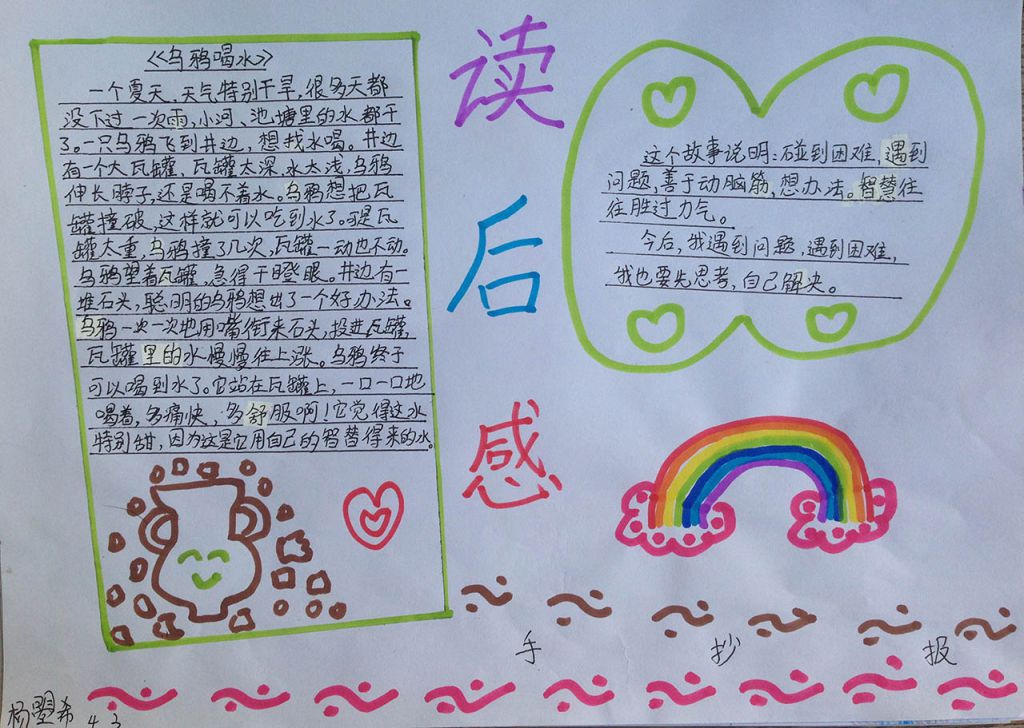 《乌鸦喝水》
一个夏天,天气特别干旱,很多天都
没下过一次雨,小河、池塘里的水都干
了。一只乌鸦飞到井边,想找水喝。井边
有一个大瓦罐,瓦罐太深,水太浅,乌鸦
伸长脖子,还是喝不着水。乌鸦想把瓦
罐撞破,这样就可以吃到水了。可是瓦
罐太重,乌鸦撞了几次,瓦罐一动也不动。
乌鸦望着瓦罐,急得干瞪眼。井边有一
堆石头,聪明的乌鸦想出了一个好办法。
乌鸦一次一次地用嘴衔来石头,投进瓦罐,
瓦罐里的水慢慢往上涨。乌鸦终于
可以喝到水了。它站在瓦罐上,一口一口地
喝着,多痛快,多舒服啊!它觉得这水
特别甜,因为这是它用自己的智慧得来的水。
读
后
感
这个故事说明:碰到困难,遇到
问题,善于动脑筋,想办法。智慧往
往胜过力气。
今后,我遇到问题,遇到困难,
我也要先思考,自己解决。
手 抄 报
杨 希 4.3